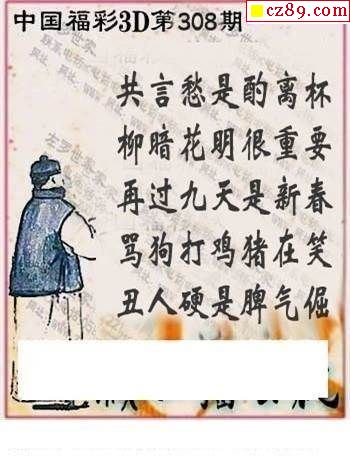 cz89.com
中国福彩3D第308期
共言愁是酌离杯
柳暗花明很重要
再过九天是新春
骂狗打鸡猪在笑
丑人硬是脾气倔